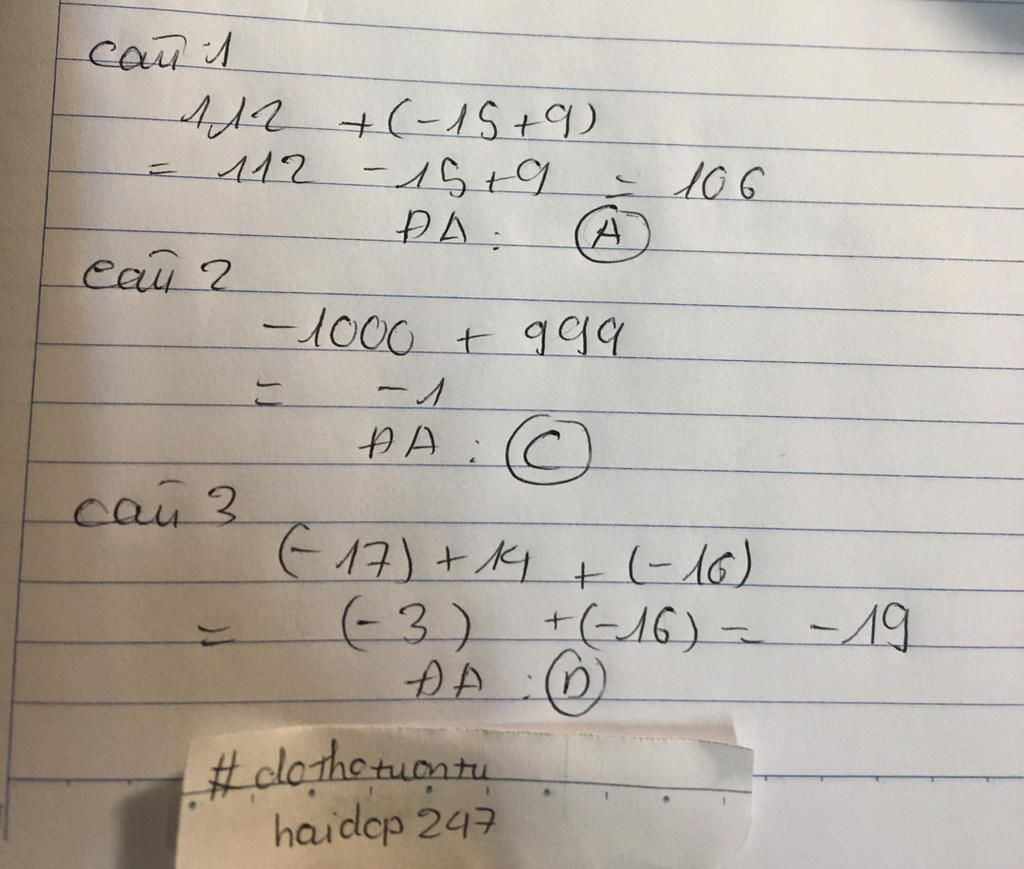 câu 1
112 + (-15+9)
= 112 -15+9 = 106
ĐA : A
câu 2
-1000 + 999
= -1
ĐA : C
câu 3
(-17) + 14 + (-16)
= (-3) + (-16) = -19
ĐA : D
haidcp 247